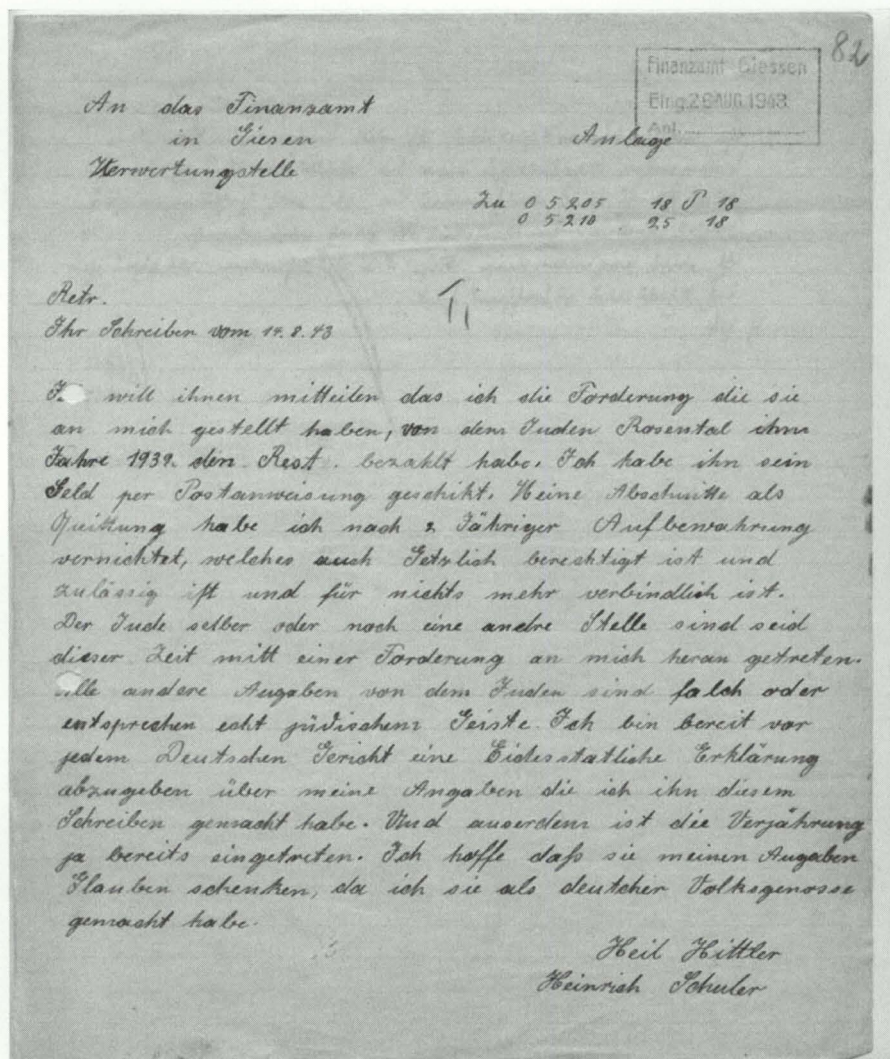 82
Finanzamt Giessen
Eing. 26 AUG. 1943
Anl.
An das Finanzamt
in Giesen
Verwertungstelle
Anlage
Zu 0 5205 18 P 18
0 5210 25 18
Betr.
Ihr Schreiben vom 14. 8. 43
will ihnen mitteilen das ich die Forderung die sie
an mich gestellt haben, von dem Juden Rosental ihm
Jahre 1939. den Rest. bezahlt habe. Ich habe ihn sein
Geld per Postanweisung geschikt. Meine Abschnitte als
Quittung habe ich nach 2 Jähriger Aufbewahrung
vernichtet, welches auch Getzlich berechtigt ist und
zulässig ist und für nichts mehr verbindlich ist.
Der Jude selber oder noch eine andre Stelle sind seid
dieser Zeit mitt einer Forderung an mich heran getreten.
Alle andere Angaben von dem Juden sind falch oder
entsprechen echt jüdischem Geiste. Ich bin bereit vor
jedem Deutschen Gericht eine Eidesstatliche Erklärung
abzugeben über meine Angaben die ich ihn diesem
Schreiben gemacht habe. Und auserdem ist die Verjährung
ja bereits eingetreten. Ich hoffe daß sie meinen Angaben
Glauben schenken, da ich sie als deutcher Volksgenosse
gemacht habe.
Heil Hittler
Heinrich Schuler